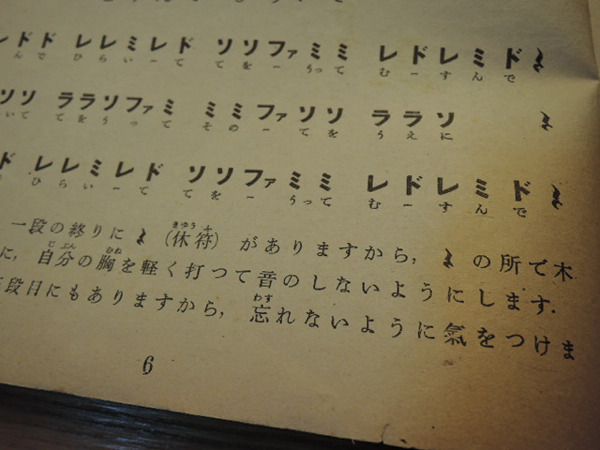 レドド レレミレド ソソファミミ レドレミド 𝄽
んで ひらいーて てをーうって むーすんで
ソソ ララソファミ ミミファソソ ララソ 𝄽
いて てをうって そのーてを うえに
ド レレミレド ソソファミミ レドレミド 𝄽
ひらいーて てをーうって むーすんで
一段の終りに 𝄽 (休符) がありますから, 𝄽 の所で木
きゆうふ
に, 自分の胸を軽く打つて音のしないようにします.
じぶん むね
段目にもありますから, 忘れないように氣をつけま
わす
6